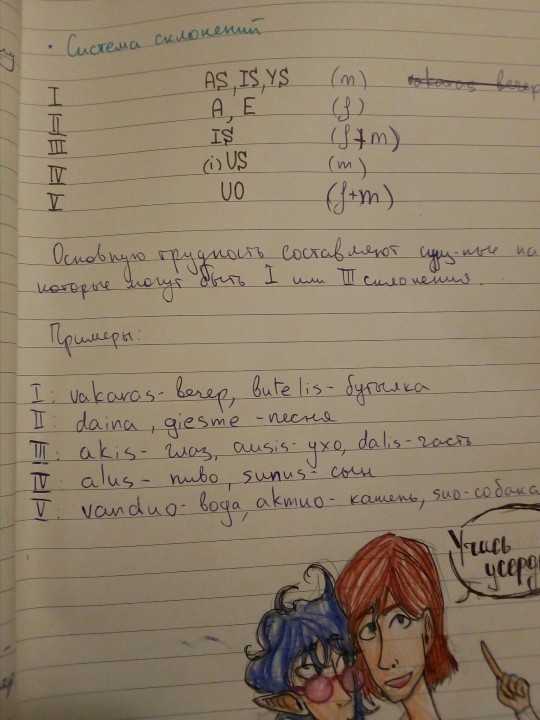 • Система склонений
I AS, IS, YS (m) vakaras вечер
II A, E (f)
III IS (f+m)
IV (i)US (m)
V UO (f+m)
Основную трудность составляют сущ-ные на
которые могут быть I или III склонения.
Примеры:
I: vakaras - вечер, butelis - бутылка
II: daina, giesme - песня
III: akis - глаз, ausis - ухо, dalis - часть
IV: alus - пиво, sunus - сын
V: vanduo - вода, akmuo - камень, suo - собака
Учись
усерд